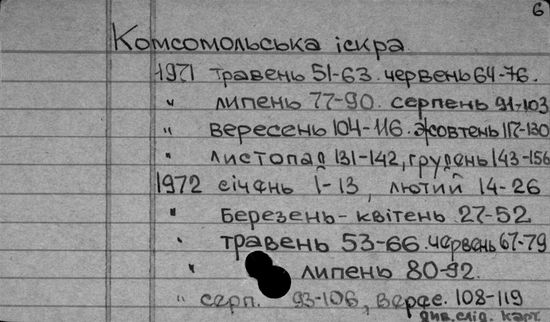 6
Комсомольська іскра
1971 травень 51-63. червень 64-76.
" липень 77-90. серпень 91-103
" вересень 104-116. жовтень 117-130
" листопад 131-142, грудень 143-156
1972 січень 1-13, лютий 14-26
" березень-квітень 27-52
" травень 53-66. червень 67-79
" липень 80-92.
" серп. 93-106, верес. 108-119
див. слід. карт.